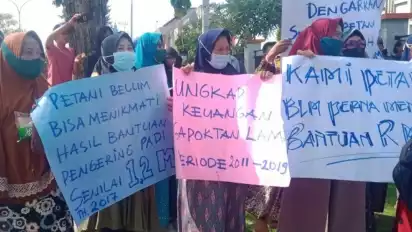 DENGARKAN
PETANI BELUM
BISA MENIKMATI
HASIL BANTUAN
PENGERING PADI
SENILAI 12 M
TH. 2017
UNGKAP
KEUANGAN
GAPOKTAN LAMA
PERIODE 2011-2019
KAMI PETANI
BLM PERNA
BANTUAN